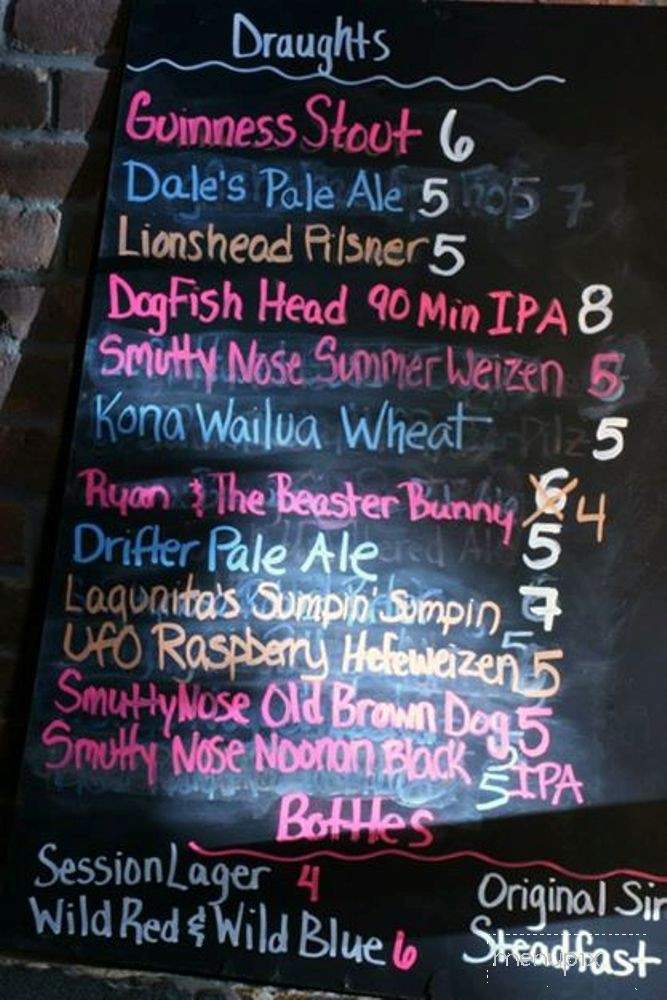 Draughts
Guinness Stout 6
Dale's Pale Ale 5
Lionshead Pilsner 5
DogFish Head 90 Min IPA 8
Smutty Nose Summer Weizen 5
Kona Wailua Wheat 5
Ryan & The Beaster Bunny 6 4
Drifter Pale Ale 5
Lagunita's Sumpin' Sumpin 7
UFO Raspberry Hefeweizen 5
Smutty Nose Old Brown Dog 5
Smutty Nose Noonan Black
5 IPA
Bottles
Session Lager 4
Wild Red & Wild Blue 6
Original Sin
Steadfast
menupix